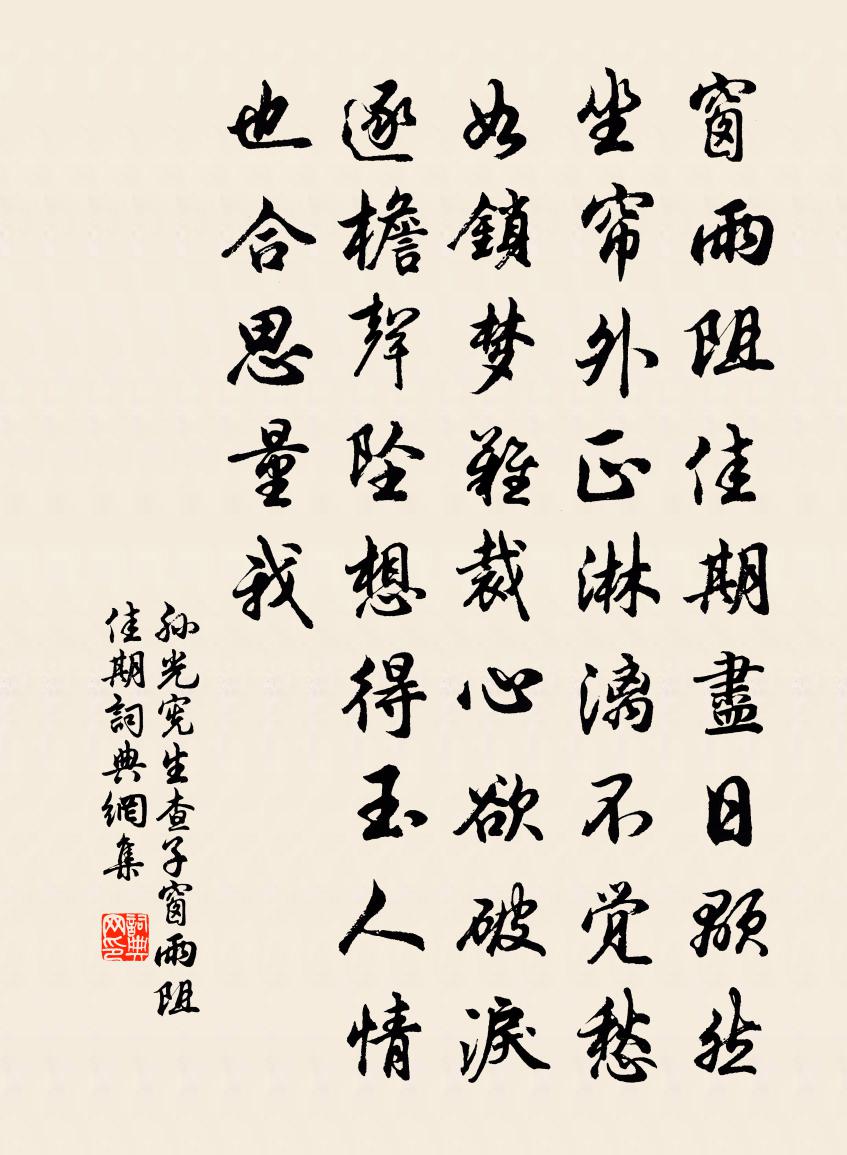 窗雨阻佳期盡日顒然
坐帘外正淋漓不觉愁
如鎖梦難裁心欲破淚
逐檐聲坠想得玉人情
也合思量我
孙光宪生查子窗雨阻
佳期詞典網集
詞典网印